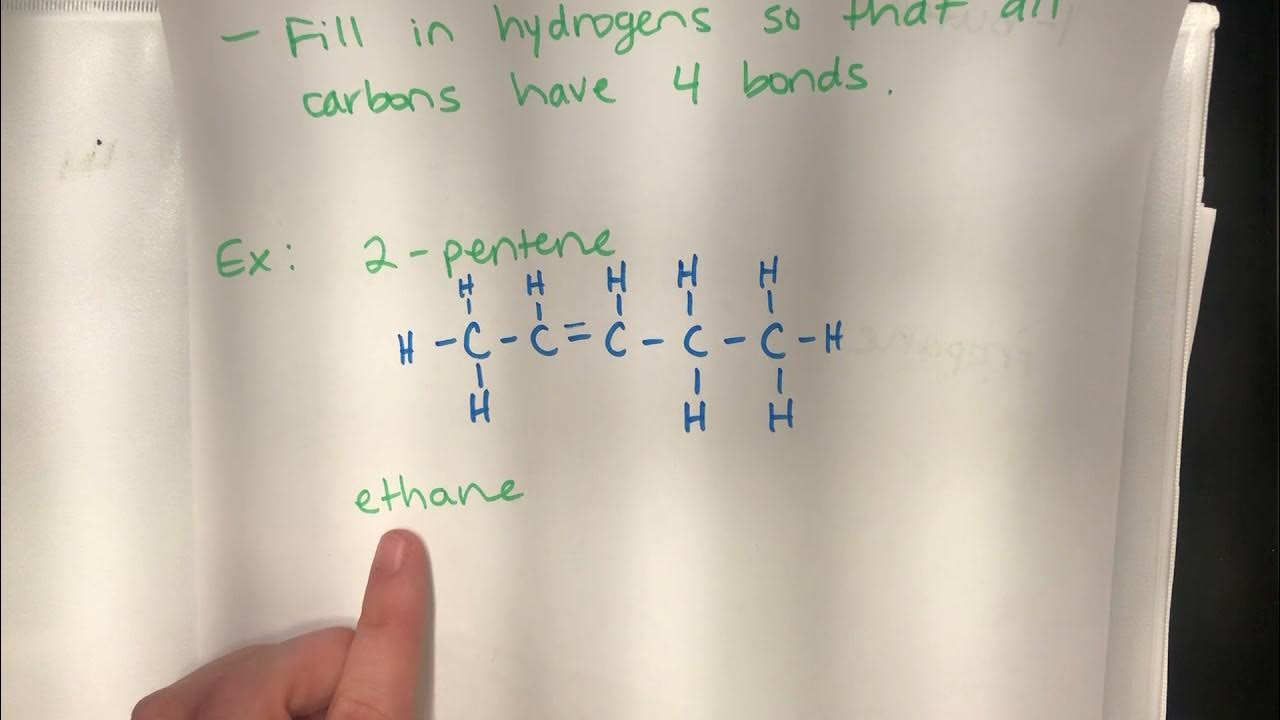 - Fill in hydrogens so that all
carbons have 4 bonds.
Ex: 2-pentene
H H H H H
H - C - C = C - C - C - H
H H H
ethane